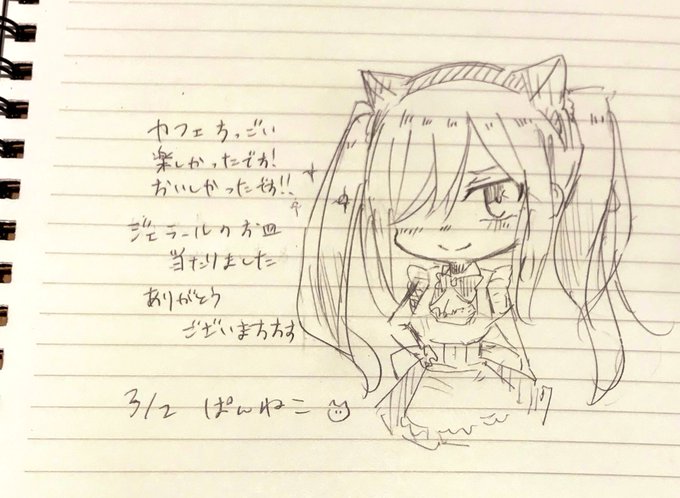 カフェちっごい
楽しかったです!
おいしかったです!!
ジェラールのお皿
当たりました
ありがとう
ございまちたす
3/2 ぱんねこ